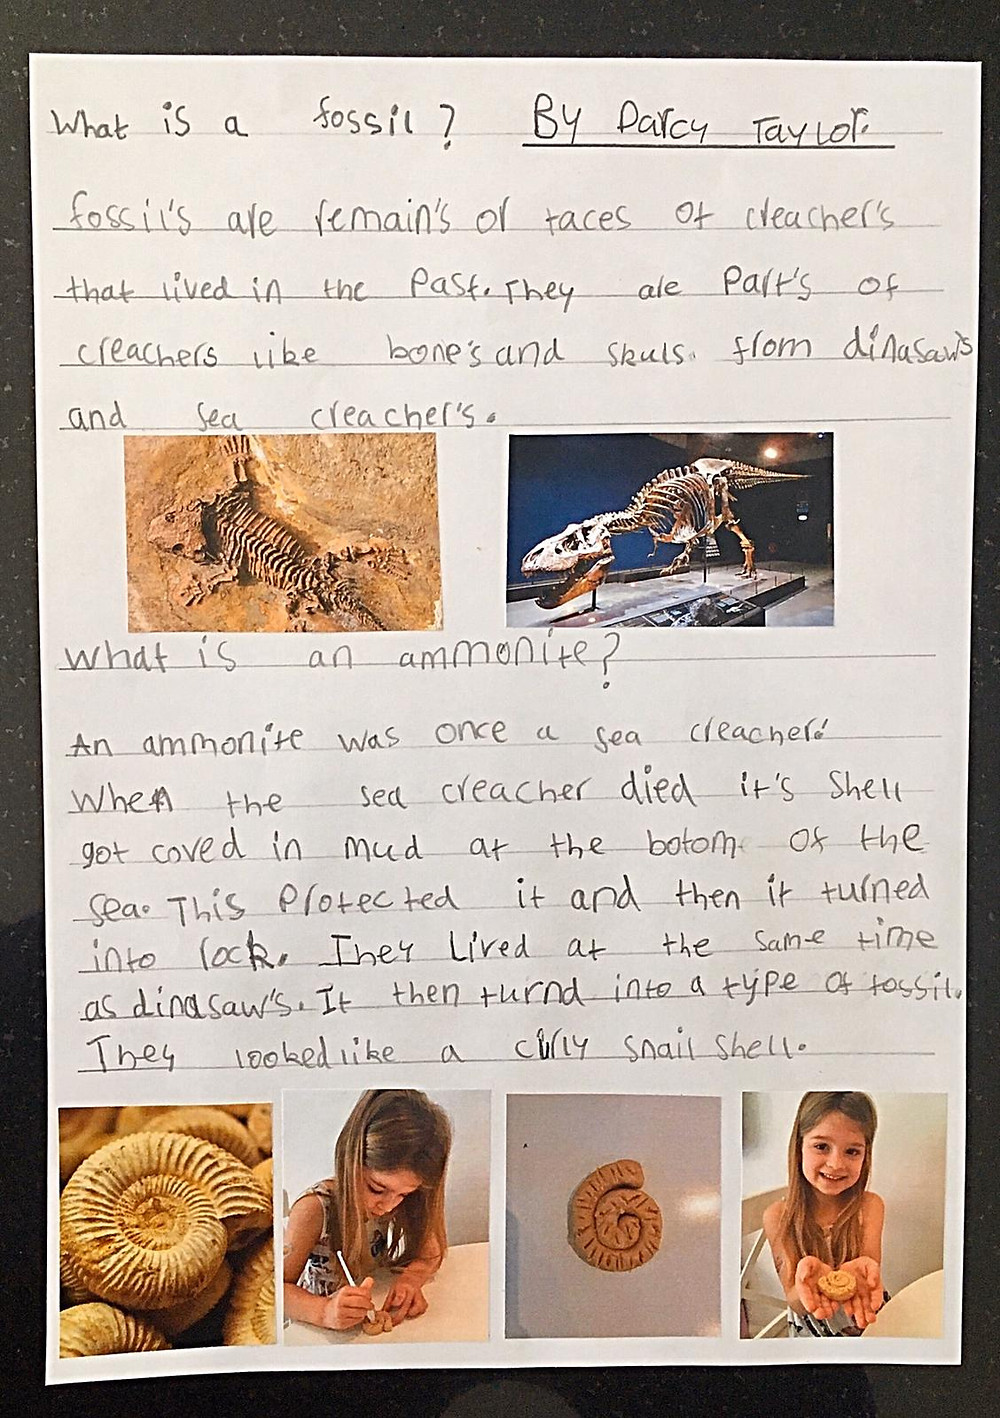 What is a fossil? By Darcy Taylor.
fossil's are remain's or taces of creacher's
that lived in the Past. They are Part's of
creachers like bone's and skuls. from dinasaw's
and sea creacher's.
What is an ammonite?
An ammonite was once a sea creacher.
When the sea creacher died it's shell
got coved in mud at the botom of the
sea. This Protected it and then it turned
into rock. They Lived at the same time
as dinasaw's. It then turnd into a type of fossil.
They looked like a curly snail shell.